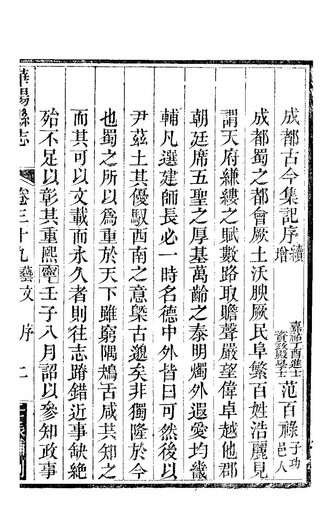 成都古今集記序續增
嘉祐丁酉進士資政殿學士
范百祿子功邑人
成都蜀之都會厥土沃腴厥民阜繁百姓浩麗見
謂天府縑縷之賦數路取贍聲嚴望偉卓越他郡
朝廷席五聖之厚基萬齡之泰明燭外遐愛均畿
輔凡選建師長必一時名德中外皆曰可然後以
尹茲土其優馭西南之意敻古邈矣非獨隆於今
也蜀之所以爲重於天下雖窮隅鴂舌咸其知之
而其可以文載而永久者則往志蹐錯近事缺絶
殆不足以彰其重熙寧壬子八月詔以參知政事
華陽縣志
卷三十九藝文
序
二